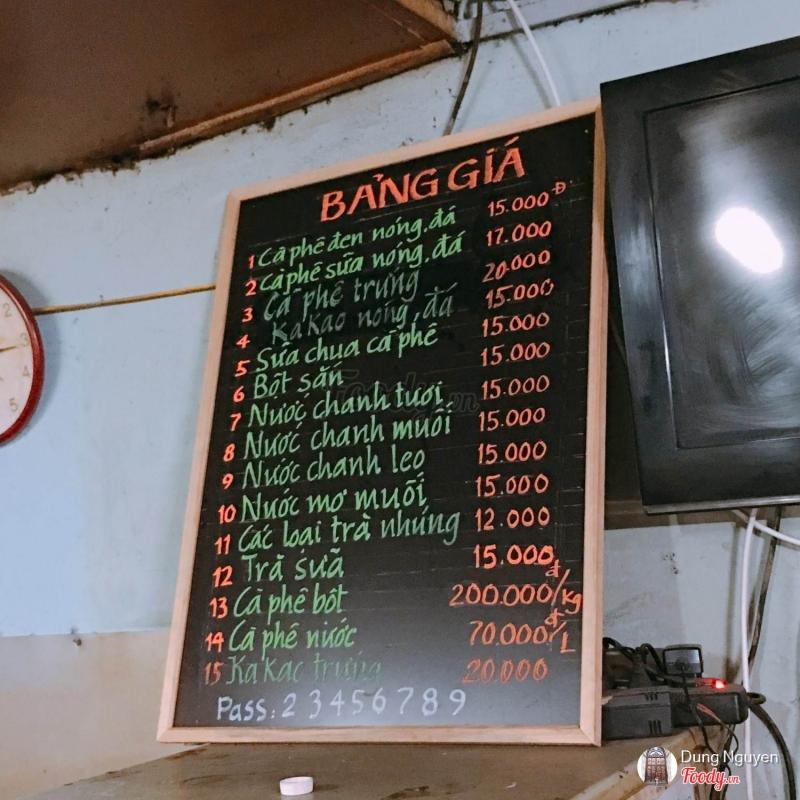 BẢNG GIÁ
1 Cà phê đen nóng, đá 15.000Đ
2 Cà phê sữa nóng, đá 17.000
3 Cà phê trứng 20.000
4 Kakao nóng, đá 15.000
5 Sữa chua cà phê 15.000
6 Bột sắn 15.000
7 Nước chanh tươi 15.000
8 Nước chanh muối 15.000
9 Nước chanh leo 15.000
10 Nước mơ muối 15.000
11 Các loại trà nhúng 12.000
12 Trà sữa 15.000
13 Cà phê bột 200.000đ/kg
14 Cà phê nước 70.000đ/L
15 Kakao trứng 20.000
Pass: 23456789
Foody.vn
Dung Nguyen
Foody.vn
2
3
4
5